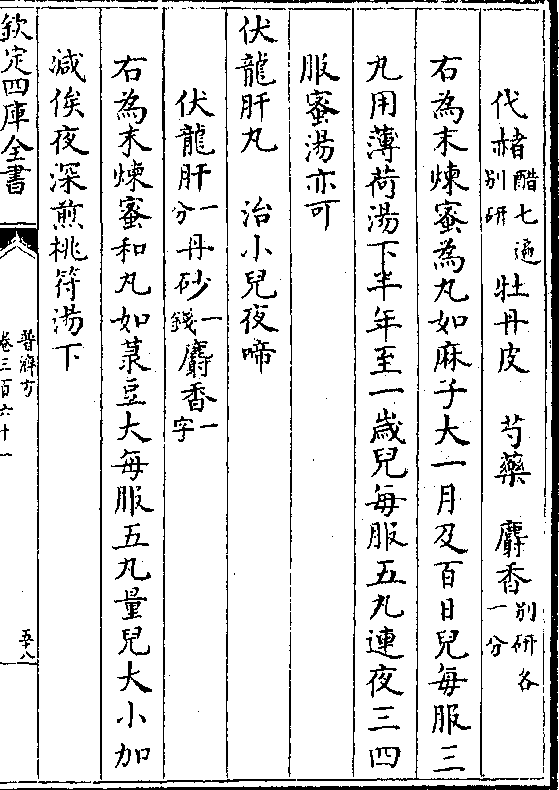 代赭醋七遍别研 牡丹皮 芍藥 麝香别研各一分
右為末煉蜜為丸如麻子大一月及百日兒每服三
丸用薄荷湯下半年至一歲兒每服五丸連夜三四
服蜜湯亦可
伏龍肝丸 治小兒夜啼
伏龍肝一分 丹砂一錢 麝香一字
右為末煉蜜和丸如菉豆大每服五丸量兒大小加
減俟夜深煎桃符湯下
欽定四庫全書
普濟方
卷三百六十一
五十八